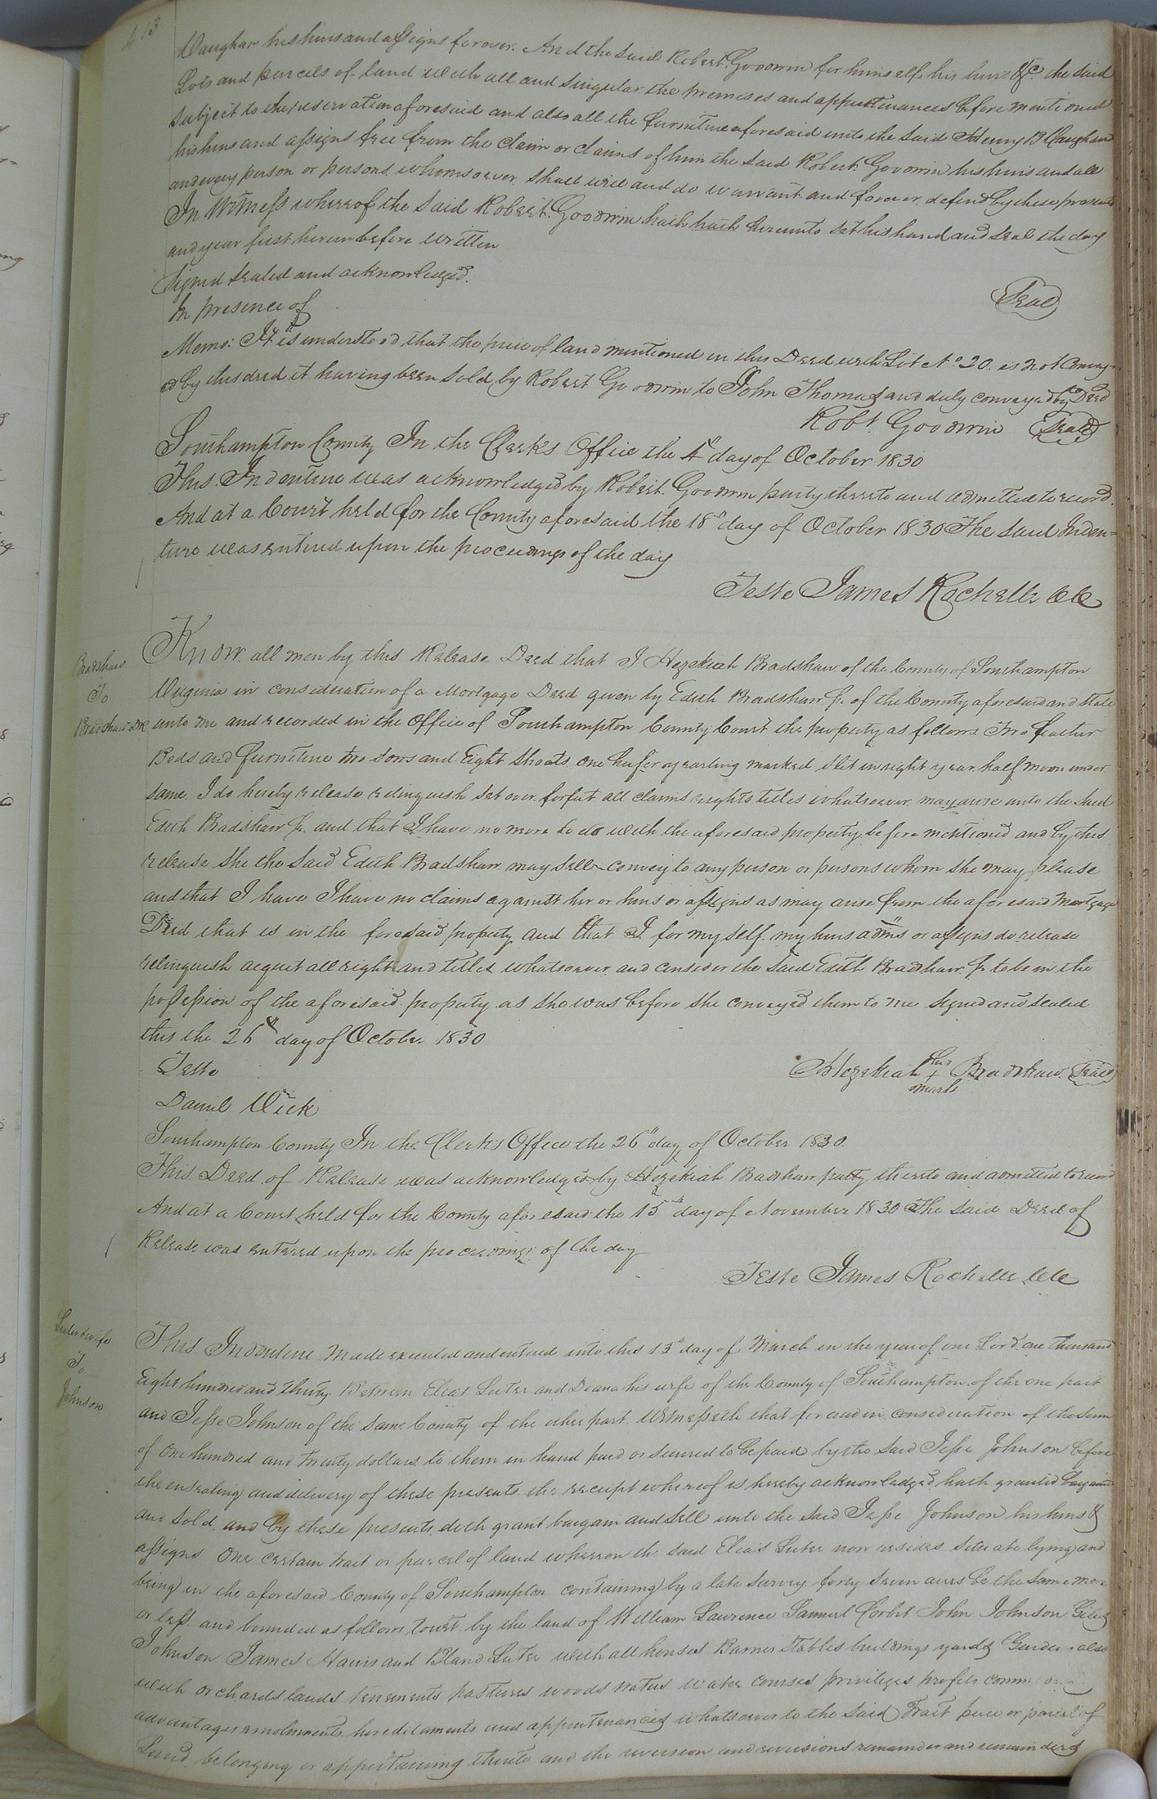 Vaughan his heirs and assigns forever. And the said Robert Goodwin for himself his heirs &c. the said
Lots and parcels of land with all and singular the premises and appurtenances before mentioned
subject to the reservation aforesaid and also all the furniture aforesaid unto the said Henry B Vaughan
his heirs and assigns free from the claim or claims of him the said Robert Goodwin his heirs and all
and every person or persons whomsoever shall will and do warrant and forever defend by these presents
In Witness whereof the said Robert Goodwin hath hath hereunto set his hand and seal the day
and year first herein before written
Signed sealed and acknowledged.
In presence of
Seal
Memo: It is understood that the piece of land mentioned in this Deed with Lot No. 20. is not convey-
ed by this deed it having been sold by Robert Goodwin to John Thomas and duly conveyed by Deed
Robt Goodwin Seal
Southampton County In the Clerks Office the 4th day of October 1830
This Indenture was acknowledged by Robert Goodwin party thereto and admitted to record
And at a Court held for the County aforesaid the 18th day of October 1830 The said Inden-
ture was entered upon the proceedings of the day
Teste James Rochelle Clk
Bradshaw
To
Bradshaw
Know all men by this Release Deed that I Hezekiah Bradshaw of the County of Southampton
Virginia in consideration of a Mortgage Deed given by Edith Bradshaw Jr. of the County aforesaid and State
unto me and recorded in the Office of Southampton County Court the property as follows Two feather
Beds and furniture two sows and Eight Shoats one heifer a yearling marked slit in right year half moon under
same. I do hereby release relinquish set over forfeit all claims rights titles whatsoever may arise unto the said
Edith Bradshaw Jr. and that I have no more to do with the aforesaid property before mentioned and by this
release she the said Edith Bradshaw may sell convey to any person or persons whom she may please
and that I have I have no claims against her or heirs or assigns as may arise from the aforesaid Mortgage
Deed that is in the foresaid property and that I for my self my heirs adms or assigns do release
relinquish acquit all right and titles whatsoever and consider the said Edith Bradshaw Jr to be in the
possession of the aforesaid property as she was before she conveyed them to me Signed and sealed
this the 26th day of October 1830
Teste
Hezekiah his + mark Bradshaw Seal
Daniel Vick
Southampton County In the Clerks Office the 26th day of October 1830
This Deed of Release was acknowledged by Hezekiah Bradshaw party thereto and admitted to record
And at a Court held for the County aforesaid the 15th day of November 1830 The said Deed of
Release was entered upon the proceedings of the day
Teste James Rochelle Clk
Luter & wife
To
Johnson
This Indenture made executed and entered into this 15th day of March in the year of our Lord one thousand
Eight hundred and thirty Between Elias Luter and Diana his wife of the County of Southampton of the one part
and Jesse Johnson of the same County of the other part Witnesseth that for and in consideration of the sum
of One hundred and twenty dollars to them in hand paid or secured to be paid by the said Jesse Johnson before
the ensealing and delivery of these presents the receipt whereof is hereby acknowledged hath granted bargained
and sold and by these presents doth grant bargain and sell unto the said Jesse Johnson his heirs &
assigns One certain trait or parcel of land whereon the said Elias Luter now resides situate lying and
being in the aforesaid County of Southampton containing by a late survey forty seven acres be the same more
or less and bounded as follows towit by the land of William Lawrence Samuel Corbit John Johnson Giles
Johnson James Harris and Bland Luter with all houses Barnes Stables buildings yards Gardens also
with orchards lands tenements pastures woods waters water courses privileges profits commodi
advantages emoluments hereditaments and appurtenances whatsoever to the said Trait piece or parcel of
Land belonging or appertaining thereto and the reversion and reversions remainder and remainders